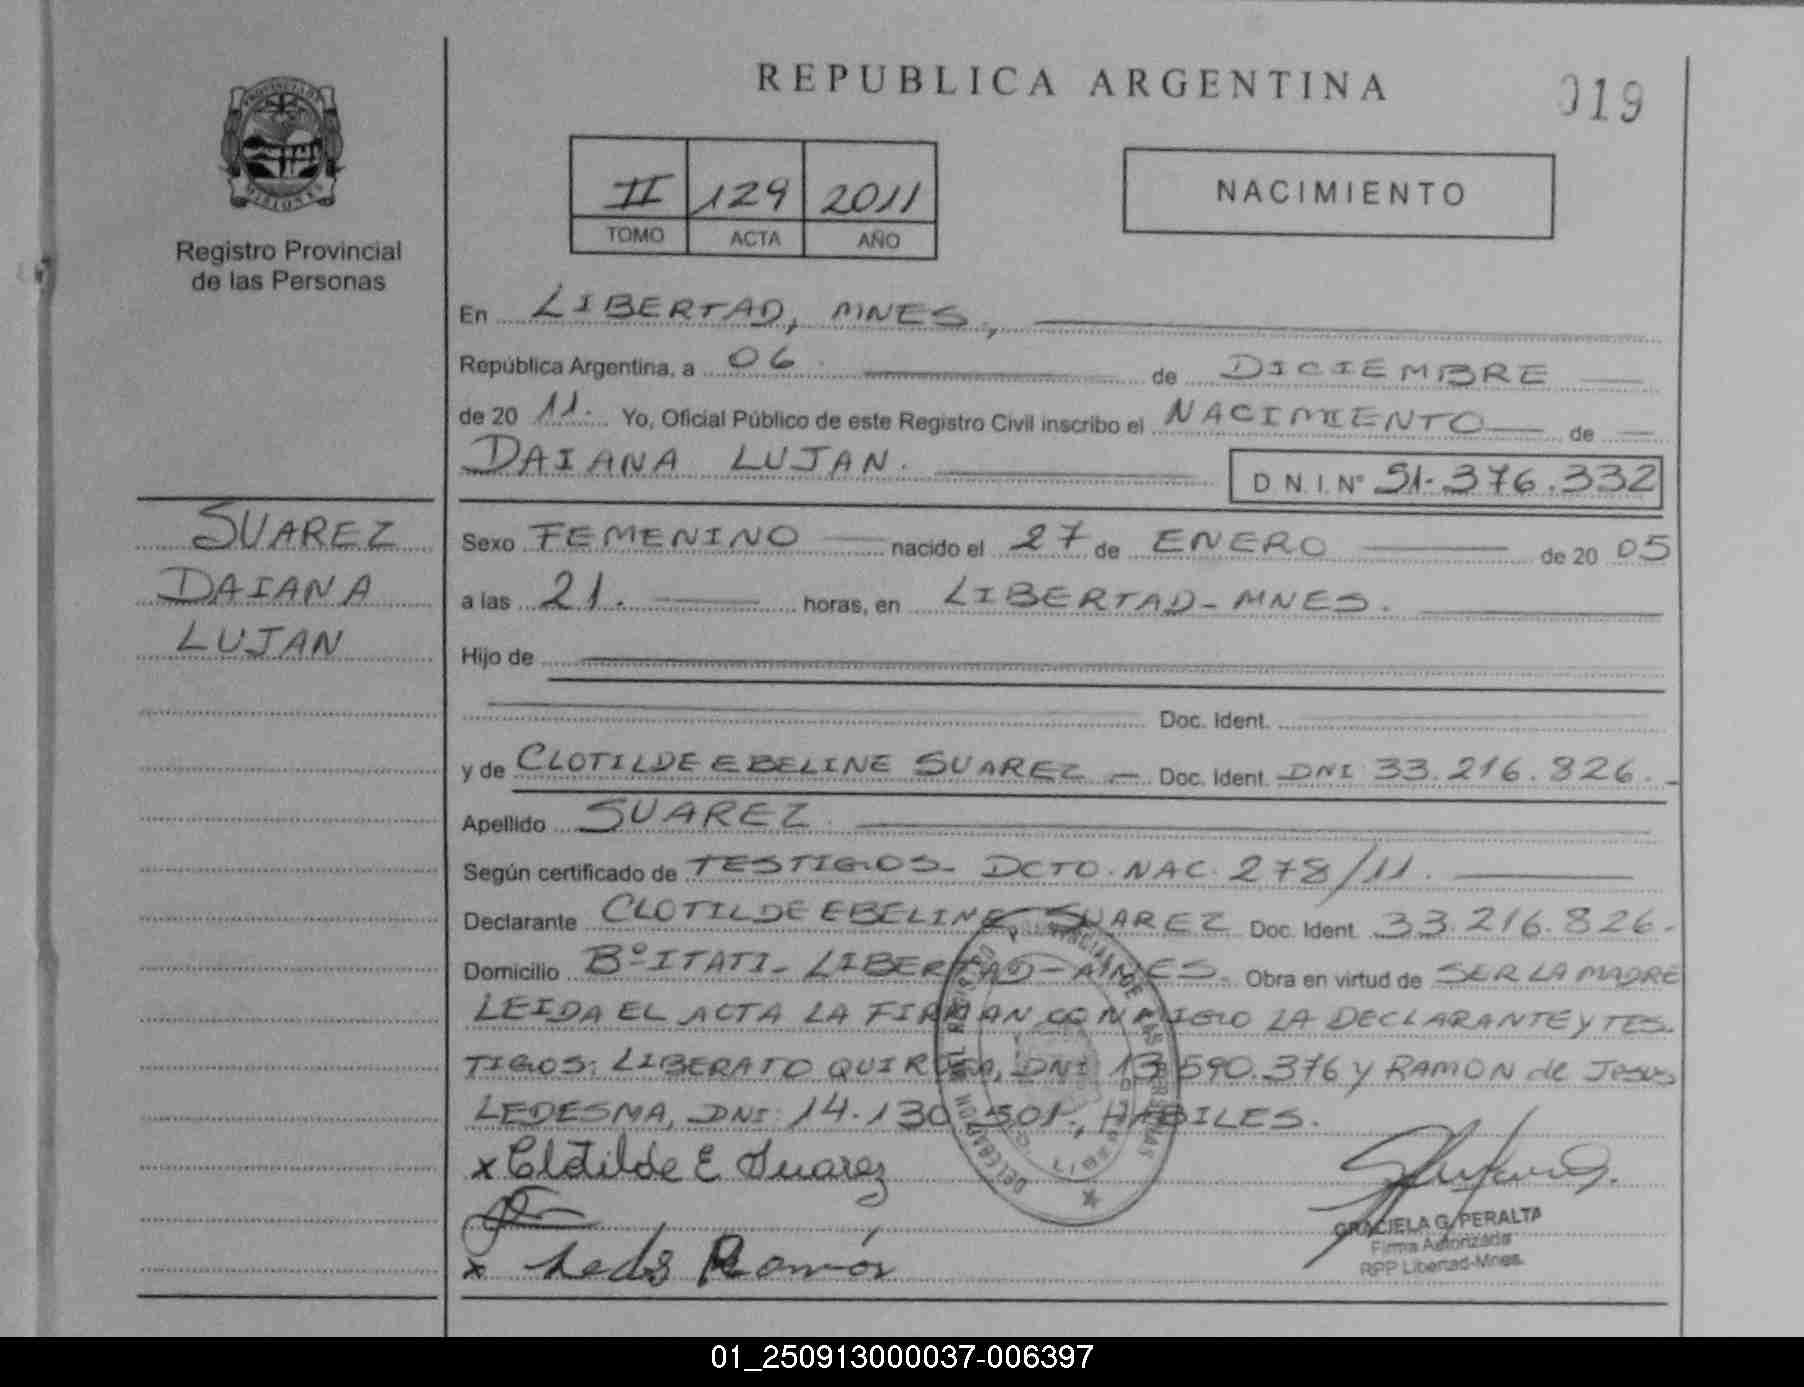 REPUBLICA ARGENTINA
019
PROVINCIA DE MISIONES
Registro Provincial
de las Personas
II 129 2011
TOMO ACTA AÑO
NACIMIENTO
En LIBERTAD, MNES.,
República Argentina, a 06. de DICIEMBRE
de 20 11. Yo, Oficial Público de este Registro Civil inscribo el NACIMIENTO de
DAIANA LUJAN. D.N.I.Nº 51.376.332
SUAREZ
DAIANA
LUJAN
Sexo FEMENINO nacido el 27 de ENERO de 20 05
a las 21. horas, en LIBERTAD-MNES.
Hijo de
Doc. Ident.
y de CLOTILDE EBELINE SUAREZ Doc. Ident. DNI 33.216.826.-
Apellido SUAREZ
Según certificado de TESTIGOS- DCTO. NAC. 278/11.
Declarante CLOTILDE EBELINE SUAREZ Doc. Ident. 33.216.826.
Domicilio Bº ITATI- LIBERTAD-MNES. Obra en virtud de SER LA MADRE
LEIDA EL ACTA LA FIRMAN CONMIGO LA DECLARANTE y TES-
TIGOS: LIBERATO DNI 13.590.376 y RAMON de Jesus
LEDESMA, DNI: 14.130.501., HABILES.
x Clotilde E Suarez
x Leds Ramón
GRACIELA G. PERALTA
Firma Autorizada
RPP Libertad-Mnes.
01_250913000037-006397